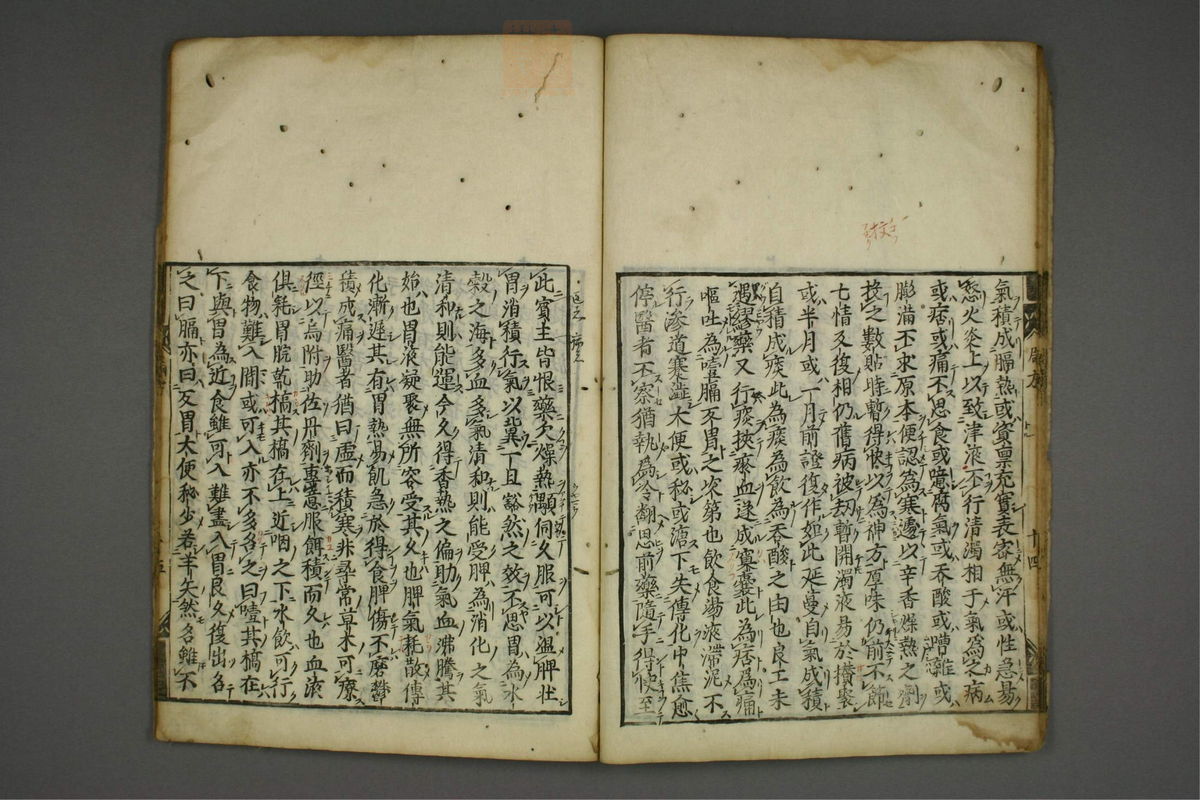 氣積成膈熱或資禀充實表密無汗或性急易
怒火炎上以致津液不行清濁相干氣爲之病
或痞或痛不思食或噫腐氣或吞酸或嘈雜或
膨滿不求原本便認為寒遽以辛香燥熱之劑
投之數貼時暫得快以為神方厚味仍前不節
七情反復相仍舊病被刼暫開濁液易於攢聚
或半月或一月前證復作如此延蔓自氣成積
自積成痰此為痰為飲為吞酸之由也良工未
遇繆藥又行痰挾瘀血遂成窠囊此為痞爲痛
嘔吐為噎膈反胃之次第也飲食湯液滯泥不
行滲道蹇澁大便或秘或溏下失傳化中焦愈
停醫者不察猶執爲冷翻思前藥隨手得快至
此賓主皆恨藥欠燥熱顒伺久服可以温脾壮
胃消積行氣以冀一旦豁然之效不思胃為水
穀之海多血多氣清和則能受脾為消化之氣
清和則能運今久得香熱之偏助氣血沸騰其
始也胃液凝聚無所容受其久也脾氣耗散傳
化漸遲其有胃熱易飢急於得食脾傷不磨鬱
積成痛醫者猶曰虚而積寒非尋常草木可療
徑以烏附助佐丹劑專意服餌積而久也血液
俱耗胃脘乾槁其槁在上近咽之下水飲可行
食物難入間或可入亦不多名之曰噎其槁在
下與胃為近食雖可入難盡入胃良久復出名
之曰膈亦曰反胃大便秘少若羊矢然名雖不
十四